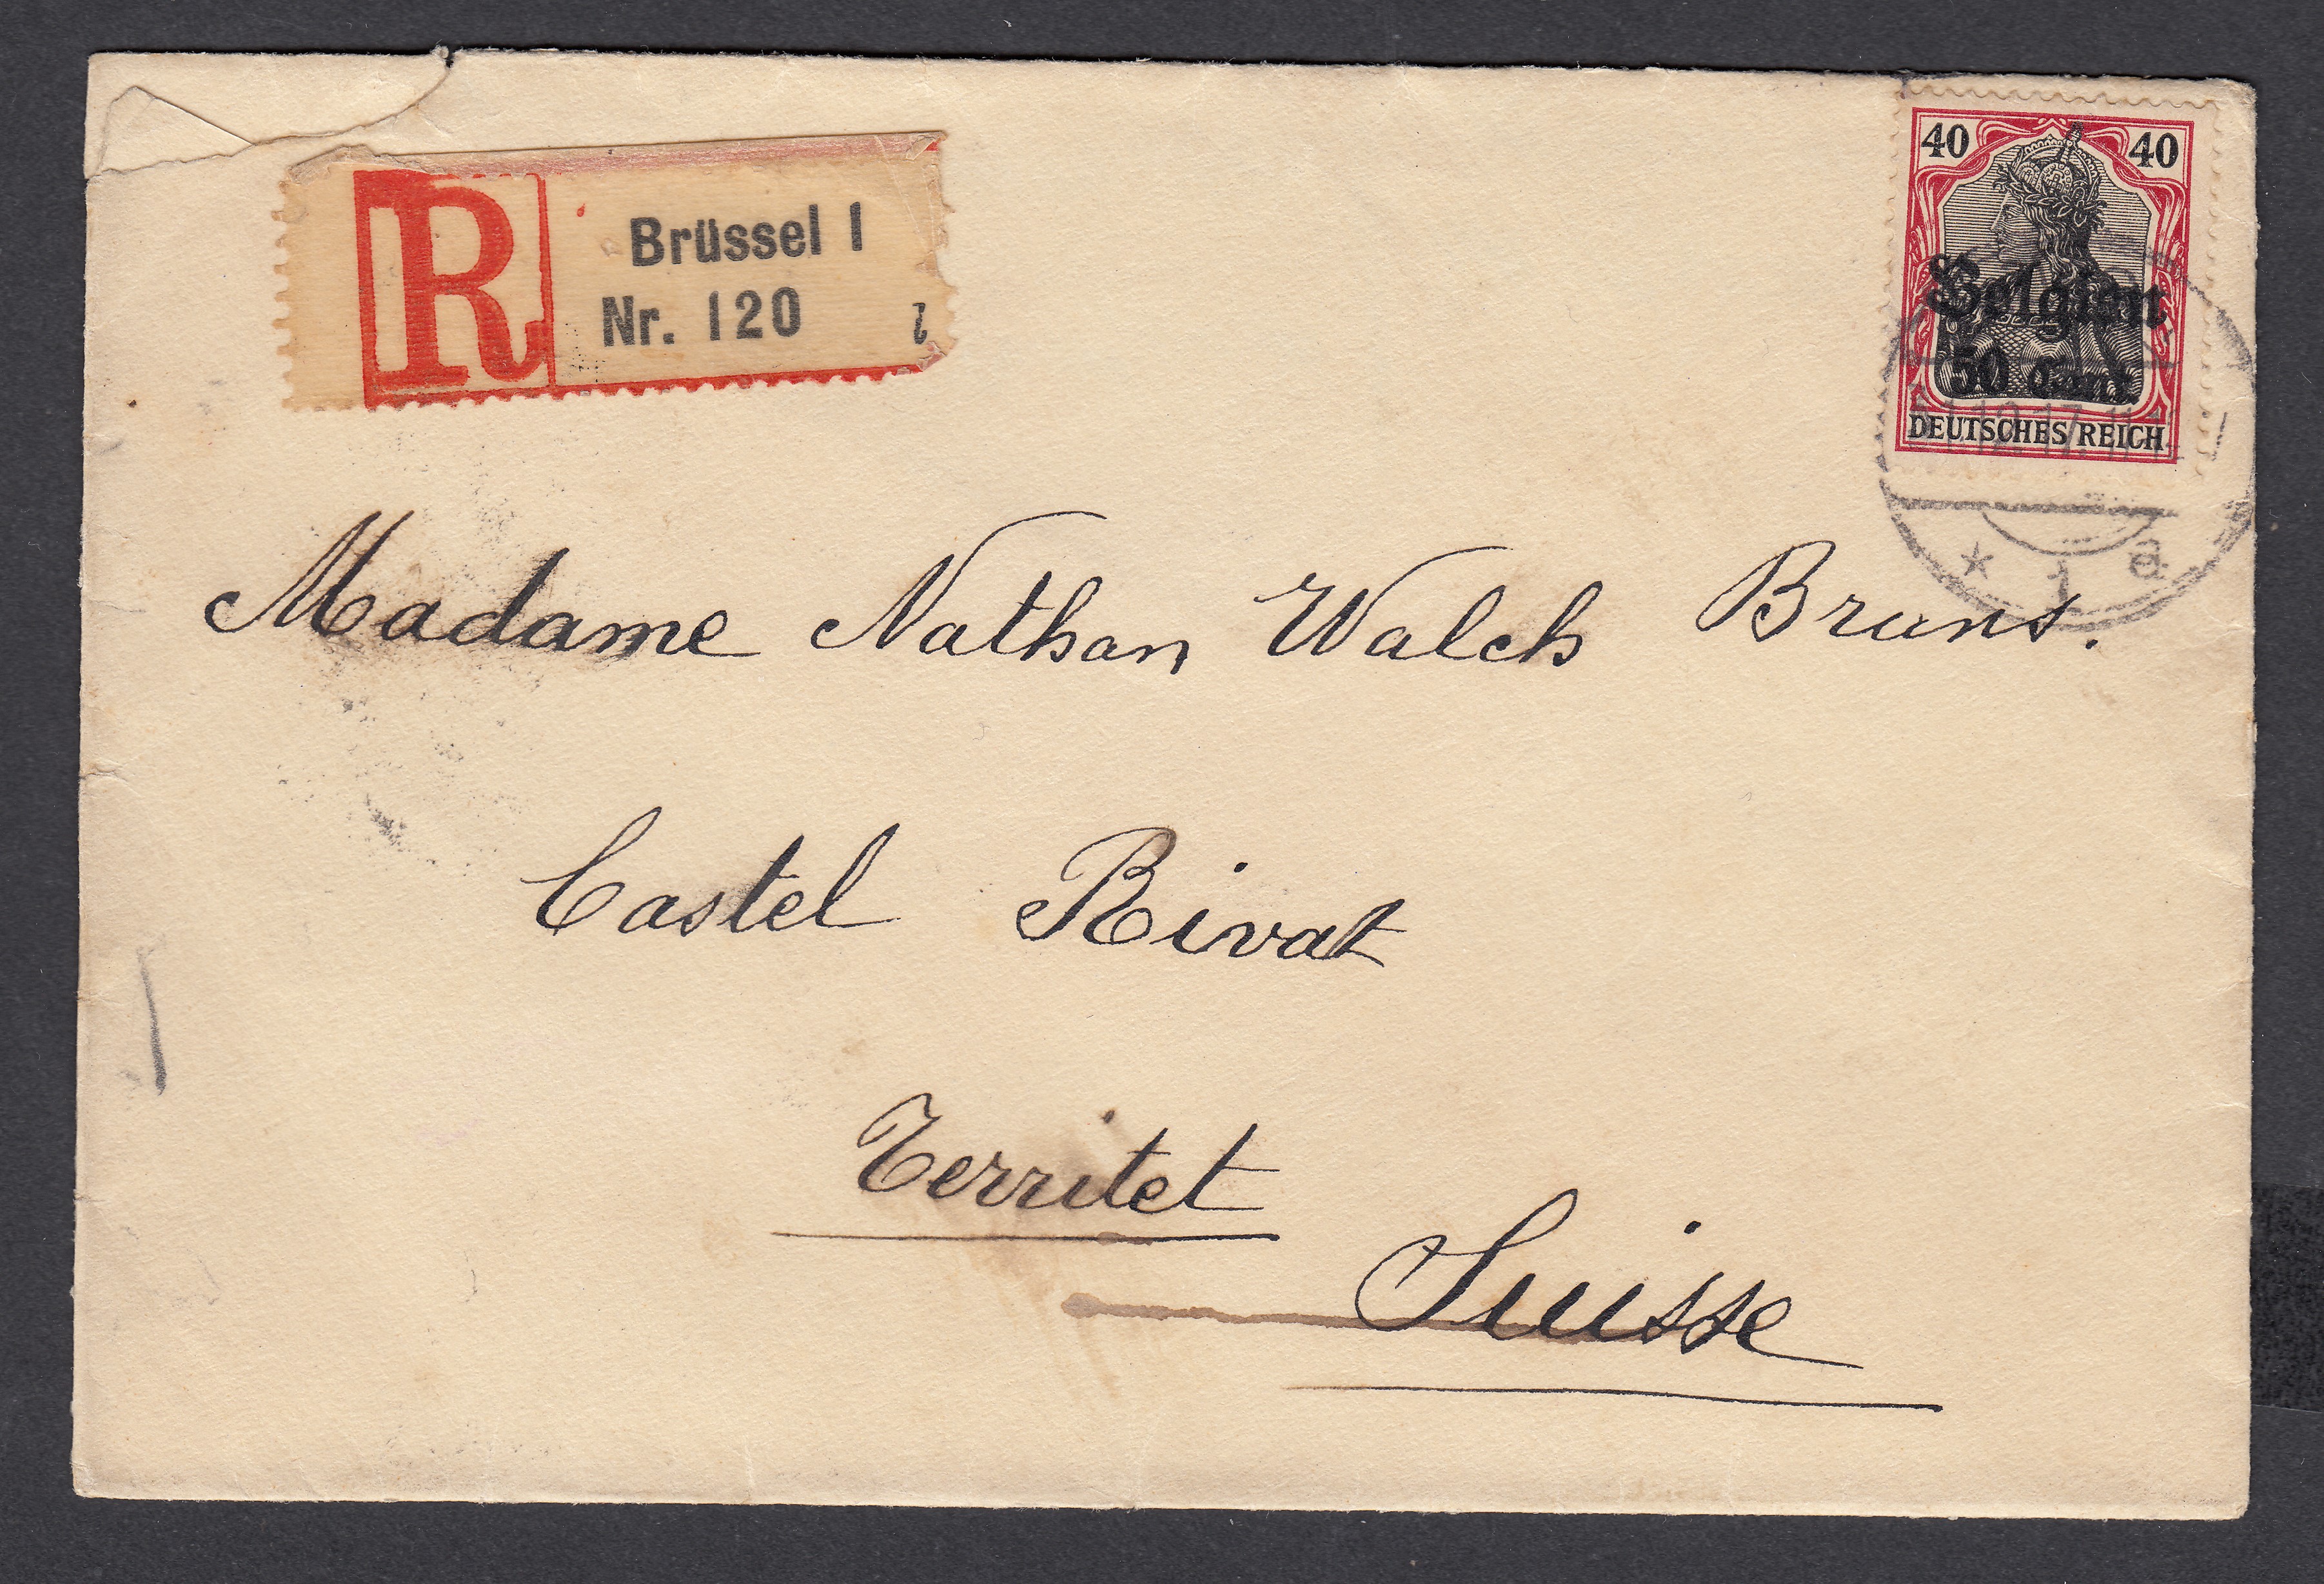 R
Brüssel 1
Nr. 120
40 40
Belgien
50 Cent.
DEUTSCHES REICH
* 1 a
Madame Nathan Walch Bruns.
Castel Rivat
Territet
Suisse